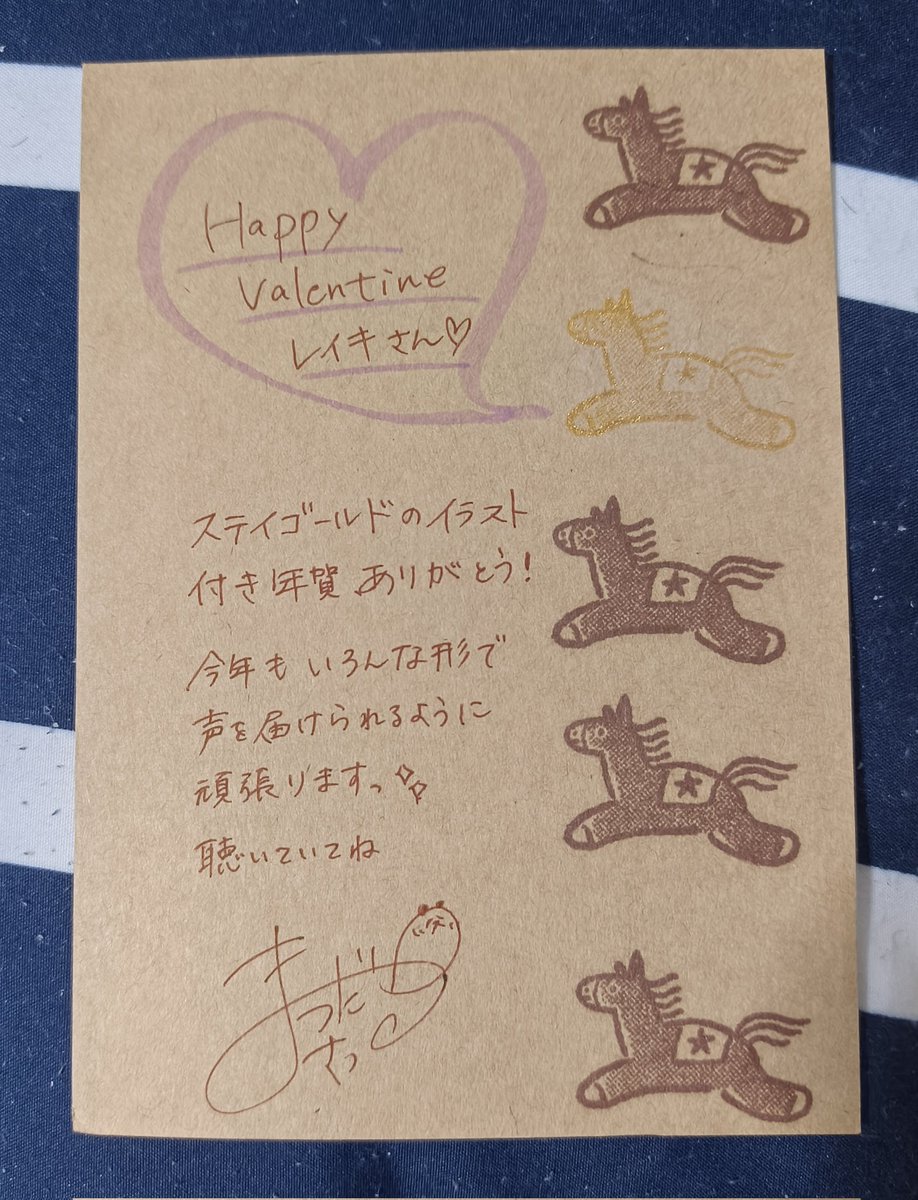 Happy
Valentine
レイキさん♡
ステイゴールドのイラスト
付き年賀 ありがとう!
今年も いろんな形で
声を届けられるように
頑張りますっ
聴いていてね
まつだ
さっ